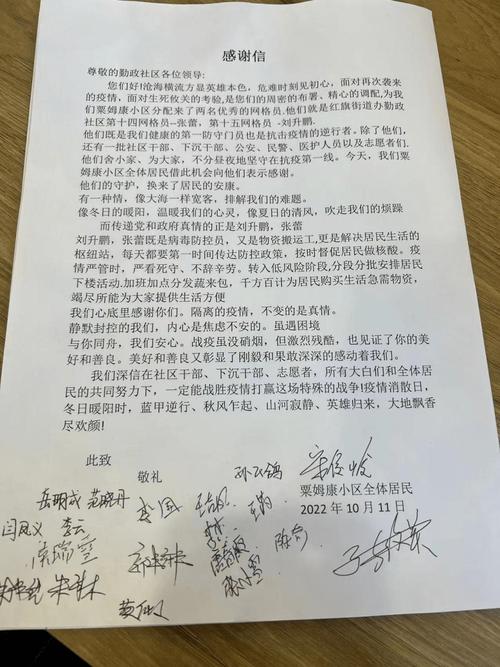 感谢信
尊敬的勤政社区各位领导:
您们好!沧海横流方显英雄本色，危难时刻见初心，面对再次袭来
的疫情，面对生死攸关的考验,是您们的周密的布署、精心的调配,为我
们粟姆康小区分配来了两名优秀的网格员.他们就是红旗街道办勤政
社区第十四网格员--张蕾，第十五网格员 -刘升鹏.
他们既是我们健康的第一防守门员也是抗击疫情的逆行者。除了他们，
还有一批社区干部、下沉干部、公安、民警、医护人员以及志愿者们.
他们舍小家、为大家，不分昼夜地坚守在抗疫第一线。今天，我们粟
姆康小区全体居民借此机会向他们表示感谢。
他们的守护，换来了居民的安康。
有一种情，像大海一样宽客，排解我们的难题。
像冬日的暖阳，温暖我们的心灵，像夏日的清风，吹走我们的烦躁
而传递党和政府真情的正是刘升鹏，张蕾
刘升鹏，张蕾既是病毒防控员，又是物资搬运工,更是解决居民生活的
枢纽站，每天都要第一时间传达防控政策，按时督促居民做核酸。疫
情严管时，严看死守、不辞辛劳。转入低风险阶段,分段分批安排居民
下楼活动.加班加点分发蔬来包，千方百计为居民购买生活急需物资，
竭尽所能为大家提供生活方便
我们心底里感谢你们。隔离的疫情，不变的是真情。
静默封控的我们，内心是焦虑不安的。虽遇困境
与你同舟，我们安心。战疫虽没硝烟，但激烈残酷，也见证了你的美
好和善良。美好和善良又彰显了刚毅和果敢深深的感动着我们。
我们深信在社区干部、下沉干部、志愿者，所有大白们和全体居
民的共同努力下，一定能战胜疫情打赢这场特殊的战争!疫情消散日，
冬日暖阳时，蓝甲逆行、秋风乍起、山河寂静、英雄归来，大地飘香
尽欢颜!
此致
敬礼
粟姆康小区全体居民
2022 年 10 月 11 日
岳明成
李云